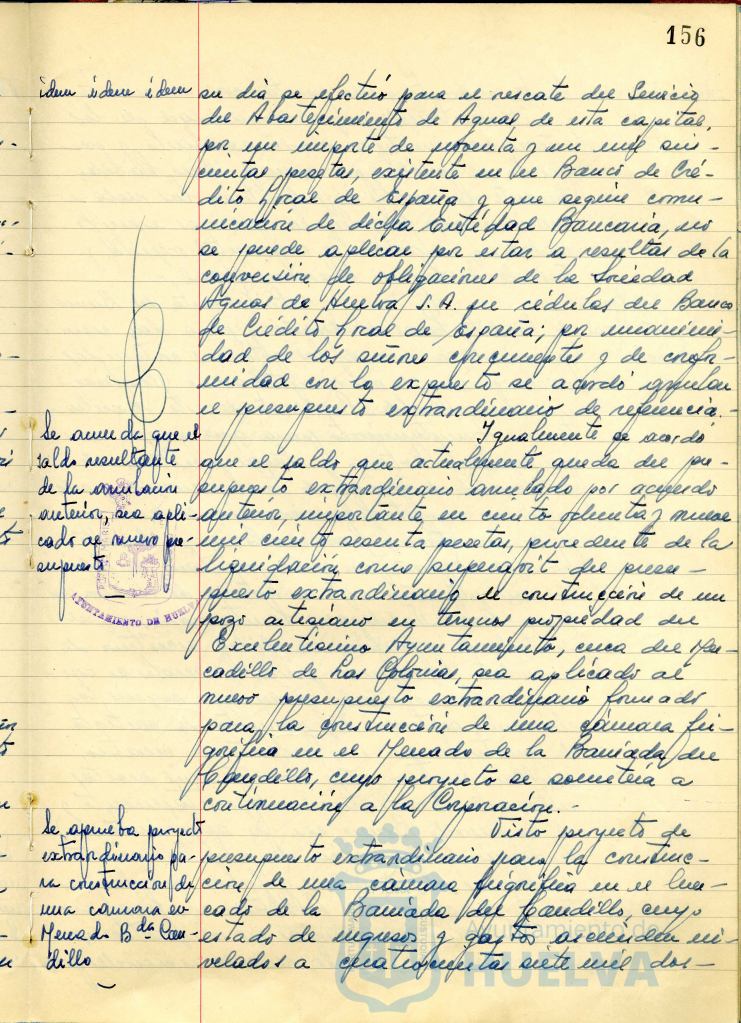 156
idem idem idem
su dia se efectuó para el rescate del Servicio
del Abastecimiento de Aguas de esta capital,
por un importe de noventa y un mil seis-
cientas pesetas, existente en el Banco de Cré-
dito Local de España y que según comu-
nicación de dicha Entidad Bancaria, no
se puede aplicar por estar a resultas de la
conversión de obligaciones de la Sociedad
Aguas de Huelva S.A. en cédulas del Banco
de Crédito Local de España; por unanimi-
dad de los señores concurrentes y de confor-
midad con lo expuesto se acordó anular
el presupuesto extraordinario de referencia.-
Se acuerda que el
saldo resultante
de la anulación
anterior, sea apli-
cado al nuevo pre-
supuesto.
Igualmente se acordó
que el saldo que actualmente queda del pre-
supuesto extraordinario anulado por acuerdo
anterior, importante en ciento ochenta y nueve
mil ciento sesenta pesetas, procedente de la
liquidación como superavit del presu-
puesto extraordinario de construcción de un
pozo artesiano en terrenos propiedad del
Excelentísimo Ayuntamiento, cerca del Mer-
cadillo de Las Colonias, sea aplicado al
nuevo presupuesto extraordinario formado
para la construcción de una cámara fri-
gorífica en el Mercado de la Barriada del
Carpdillo, cuyo proyecto se sometería a
continuación a la Corporación.-
AYUNTAMIENTO DE HUELVA
Se aprueba proyecto
extraordinario pa-
ra construcción de
una cámara en
Mercado Bda Can-
dillo
Visto proyecto de
presupuesto extraordinario para la construc-
ción de una cámara frigorífica en el Mer-
cado de la Barriada del Candillo, cuyo
estado de ingresos y gastos ascienden ni-
velados a cuatrocientas siete mil dos-
Ayuntamiento de
HUELVA